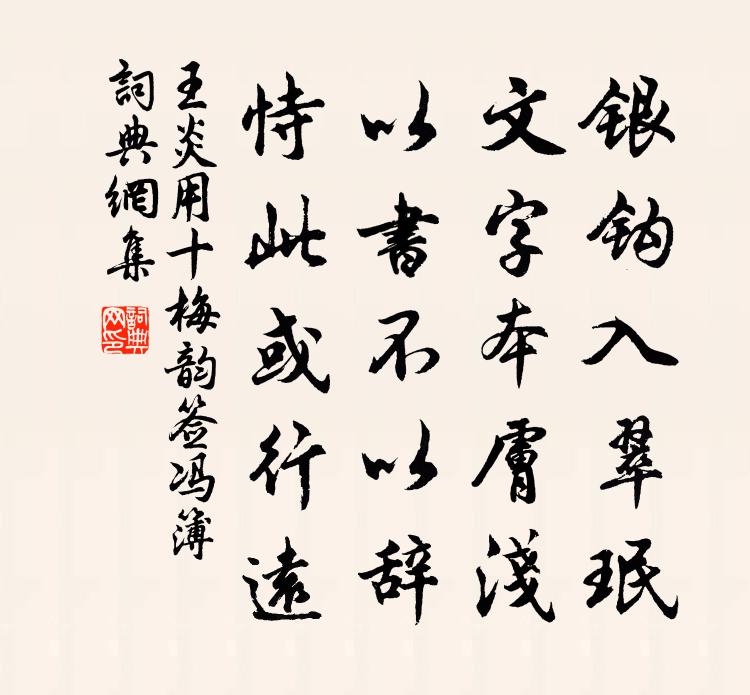 银钩入翠珉
文字本膚淺
以書不以辞
恃此或行遠
王炎用十梅韵签冯簿
詞典網集
詞典網印